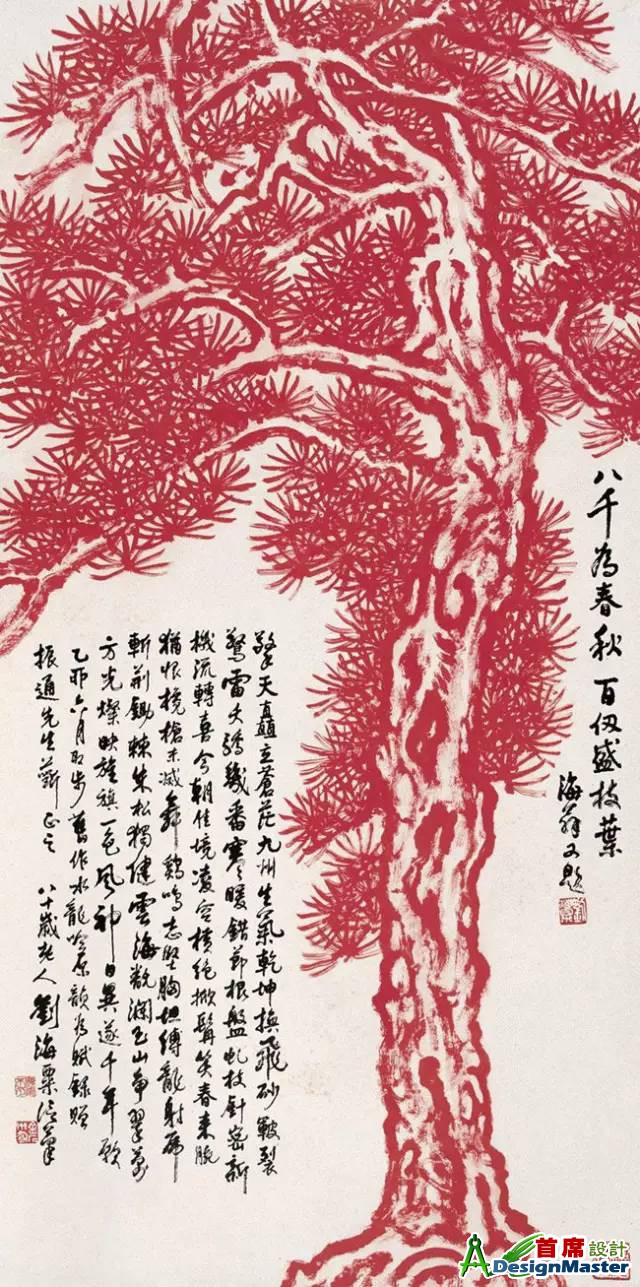 八千為春秋百仭盛枝葉
海翁又題
擎天矗立蒼茫九州生氣乾坤換飛砂皸裂
驚雷火 幾番寒暖錯節根盤虬枝針密新
機流轉喜今朝佳境凌空橫絕掀髯笑春來腕
猶恨欃槍未滅舞鷄鳴志堅胸坦縛龍射虎
斬荆鋤棘朱松獨健雲海翻瀾玉山争翠萬
方光燦映旌旗一色風神日異遂千年願
乙卯六月 步舊作水龍吟原韻為賦錄贈
振通先生 正之 八十歲老人劉海粟
首席設計
ADesignMaster